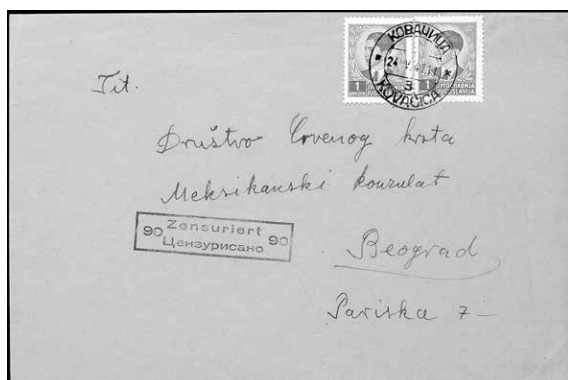 КОВАЧИЦА
KOVAČICA
Tit.
Društvo Crvenog krsta
Meksikanski konzulat
90 Zensuriert 90
Цензурисано
Beograd
Pariska 7-